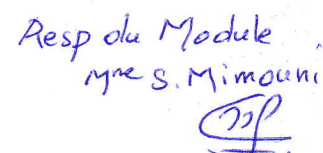 Resp du Module
Mme S. Mimouni